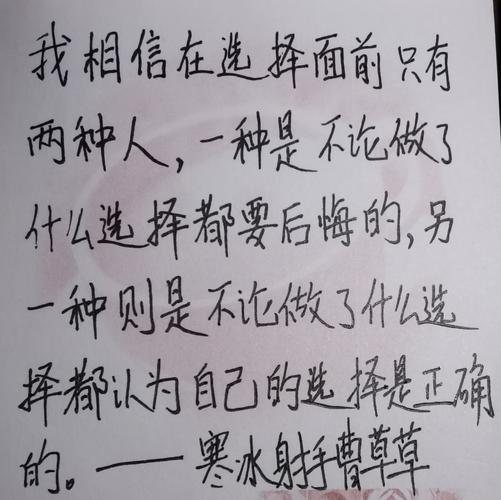 我相信在选择面前只有
两种人,一种是不论做了
什么选择都要后悔的,另
一种则是不论做了什么选
择都认为自己的选择是正确
的。——寒冰射手曹草草